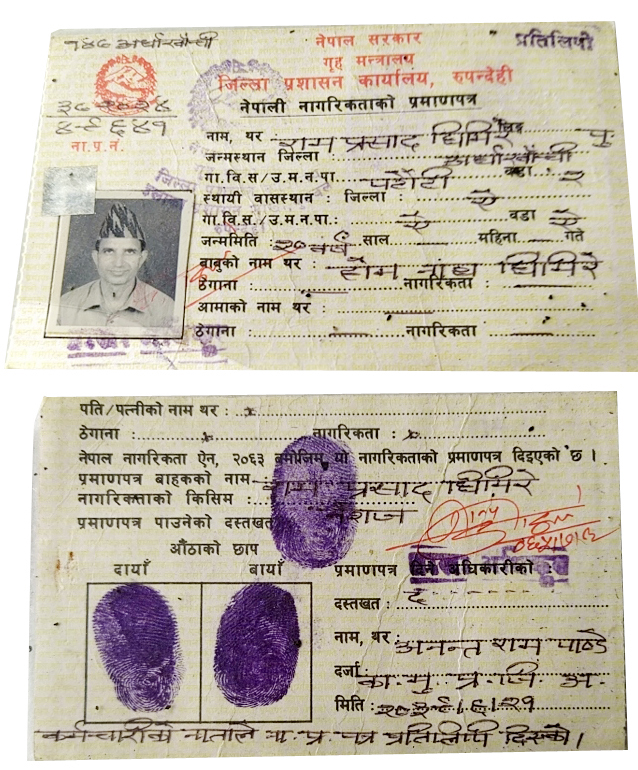 अर्घाखाँची
नेपाल सरकार
प्रतिलिपी
गृह मन्त्रालय
जिल्ला प्रशासन कार्यालय, रुपन्देही
नेपाली नागरिकताको प्रमाणपत्र
ना.प्र.नं.
नाम, थर : राम प्रसाद घिमिरे पु.
जन्मस्थान जिल्ला : अर्घाखाँची
गा.वि.स/उ.म.न.पा. वडा : २
स्थायी वासस्थान : जिल्ला : ऐ
गा.वि.स./उ.म.न.पा.: ऐ वडा ऐ
जन्ममिति : २० वर्ष साल महिना गते
बाबुको नाम थर :  घिमिरे
ठेगाना : नागरिकता :
आमाको नाम थर :
ठेगाना : नागरिकता :
पति/पत्नीको नाम थर : x
ठेगाना : x नागरिकता : x
नेपाल नागरिकता ऐन, २०६३ बमोजिम यो नागरिकताको प्रमाणपत्र दिइएको छ ।
प्रमाणपत्र बाहकको नाम राम प्रसाद घिमिरे
नागरिकताको किसिम : वंशज
प्रमाणपत्र पाउनेको दस्तखत
औंठाको छाप
दायाँ बायाँ
प्रमाणपत्र दिने अधिकारीको :
दस्तखत : द
नाम, थर : अनन्त राम पाण्डे
दर्जा : का.मु.प्र.जि.अ.
मिति :
कर्मचारीको नाताले ना.प्र.पत्र प्रतिलिपी दिएको।